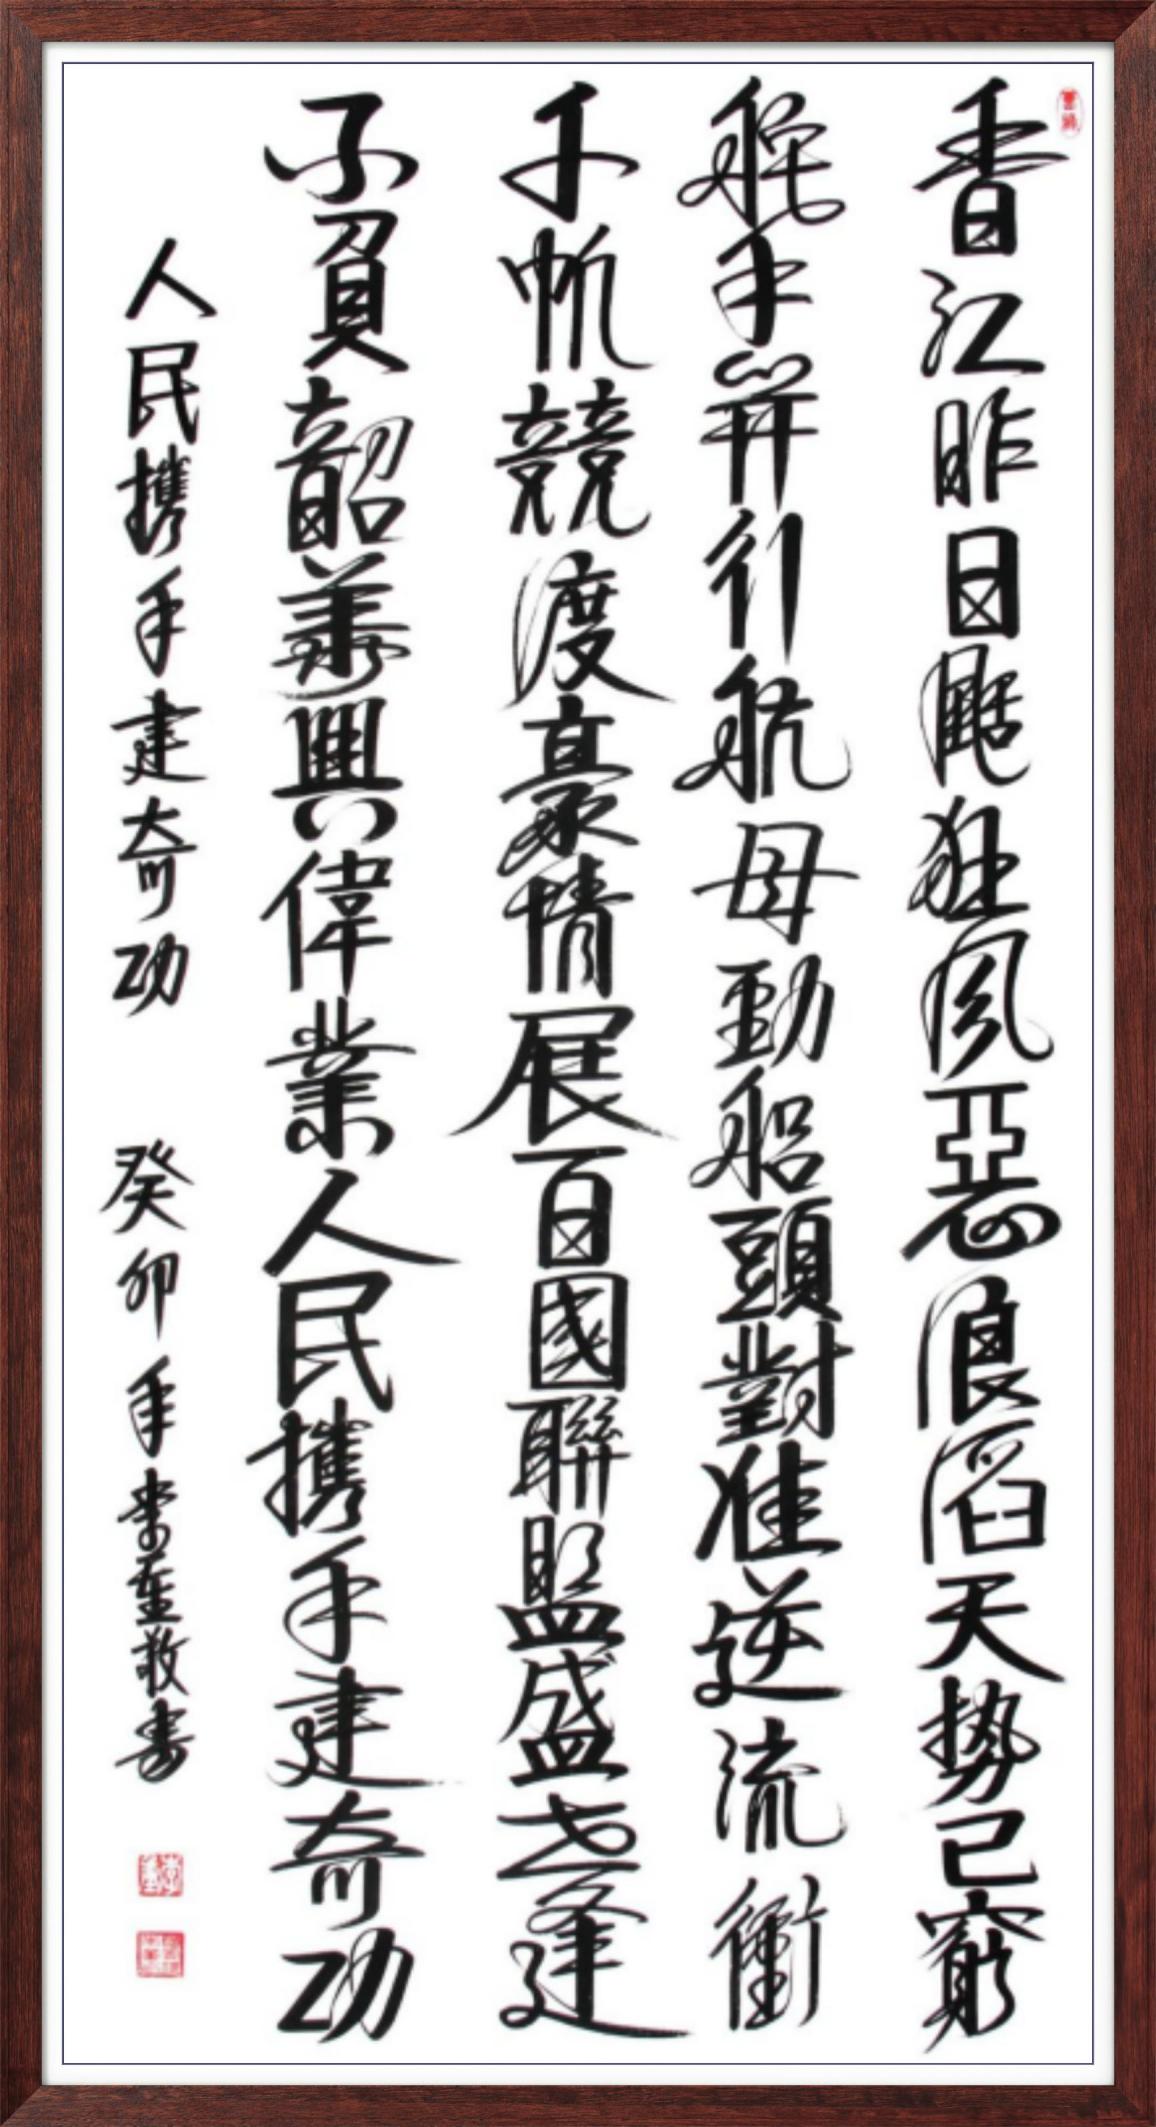 香江昨日颶狂風惡浪滔天势已窮
舵手并引航母勁船頭對准逆流衝
千帆競渡豪情展百國聯盟盛世逢
不負韶華興偉業人民携手建奇功
人民携手建奇功 癸卯年 敬書